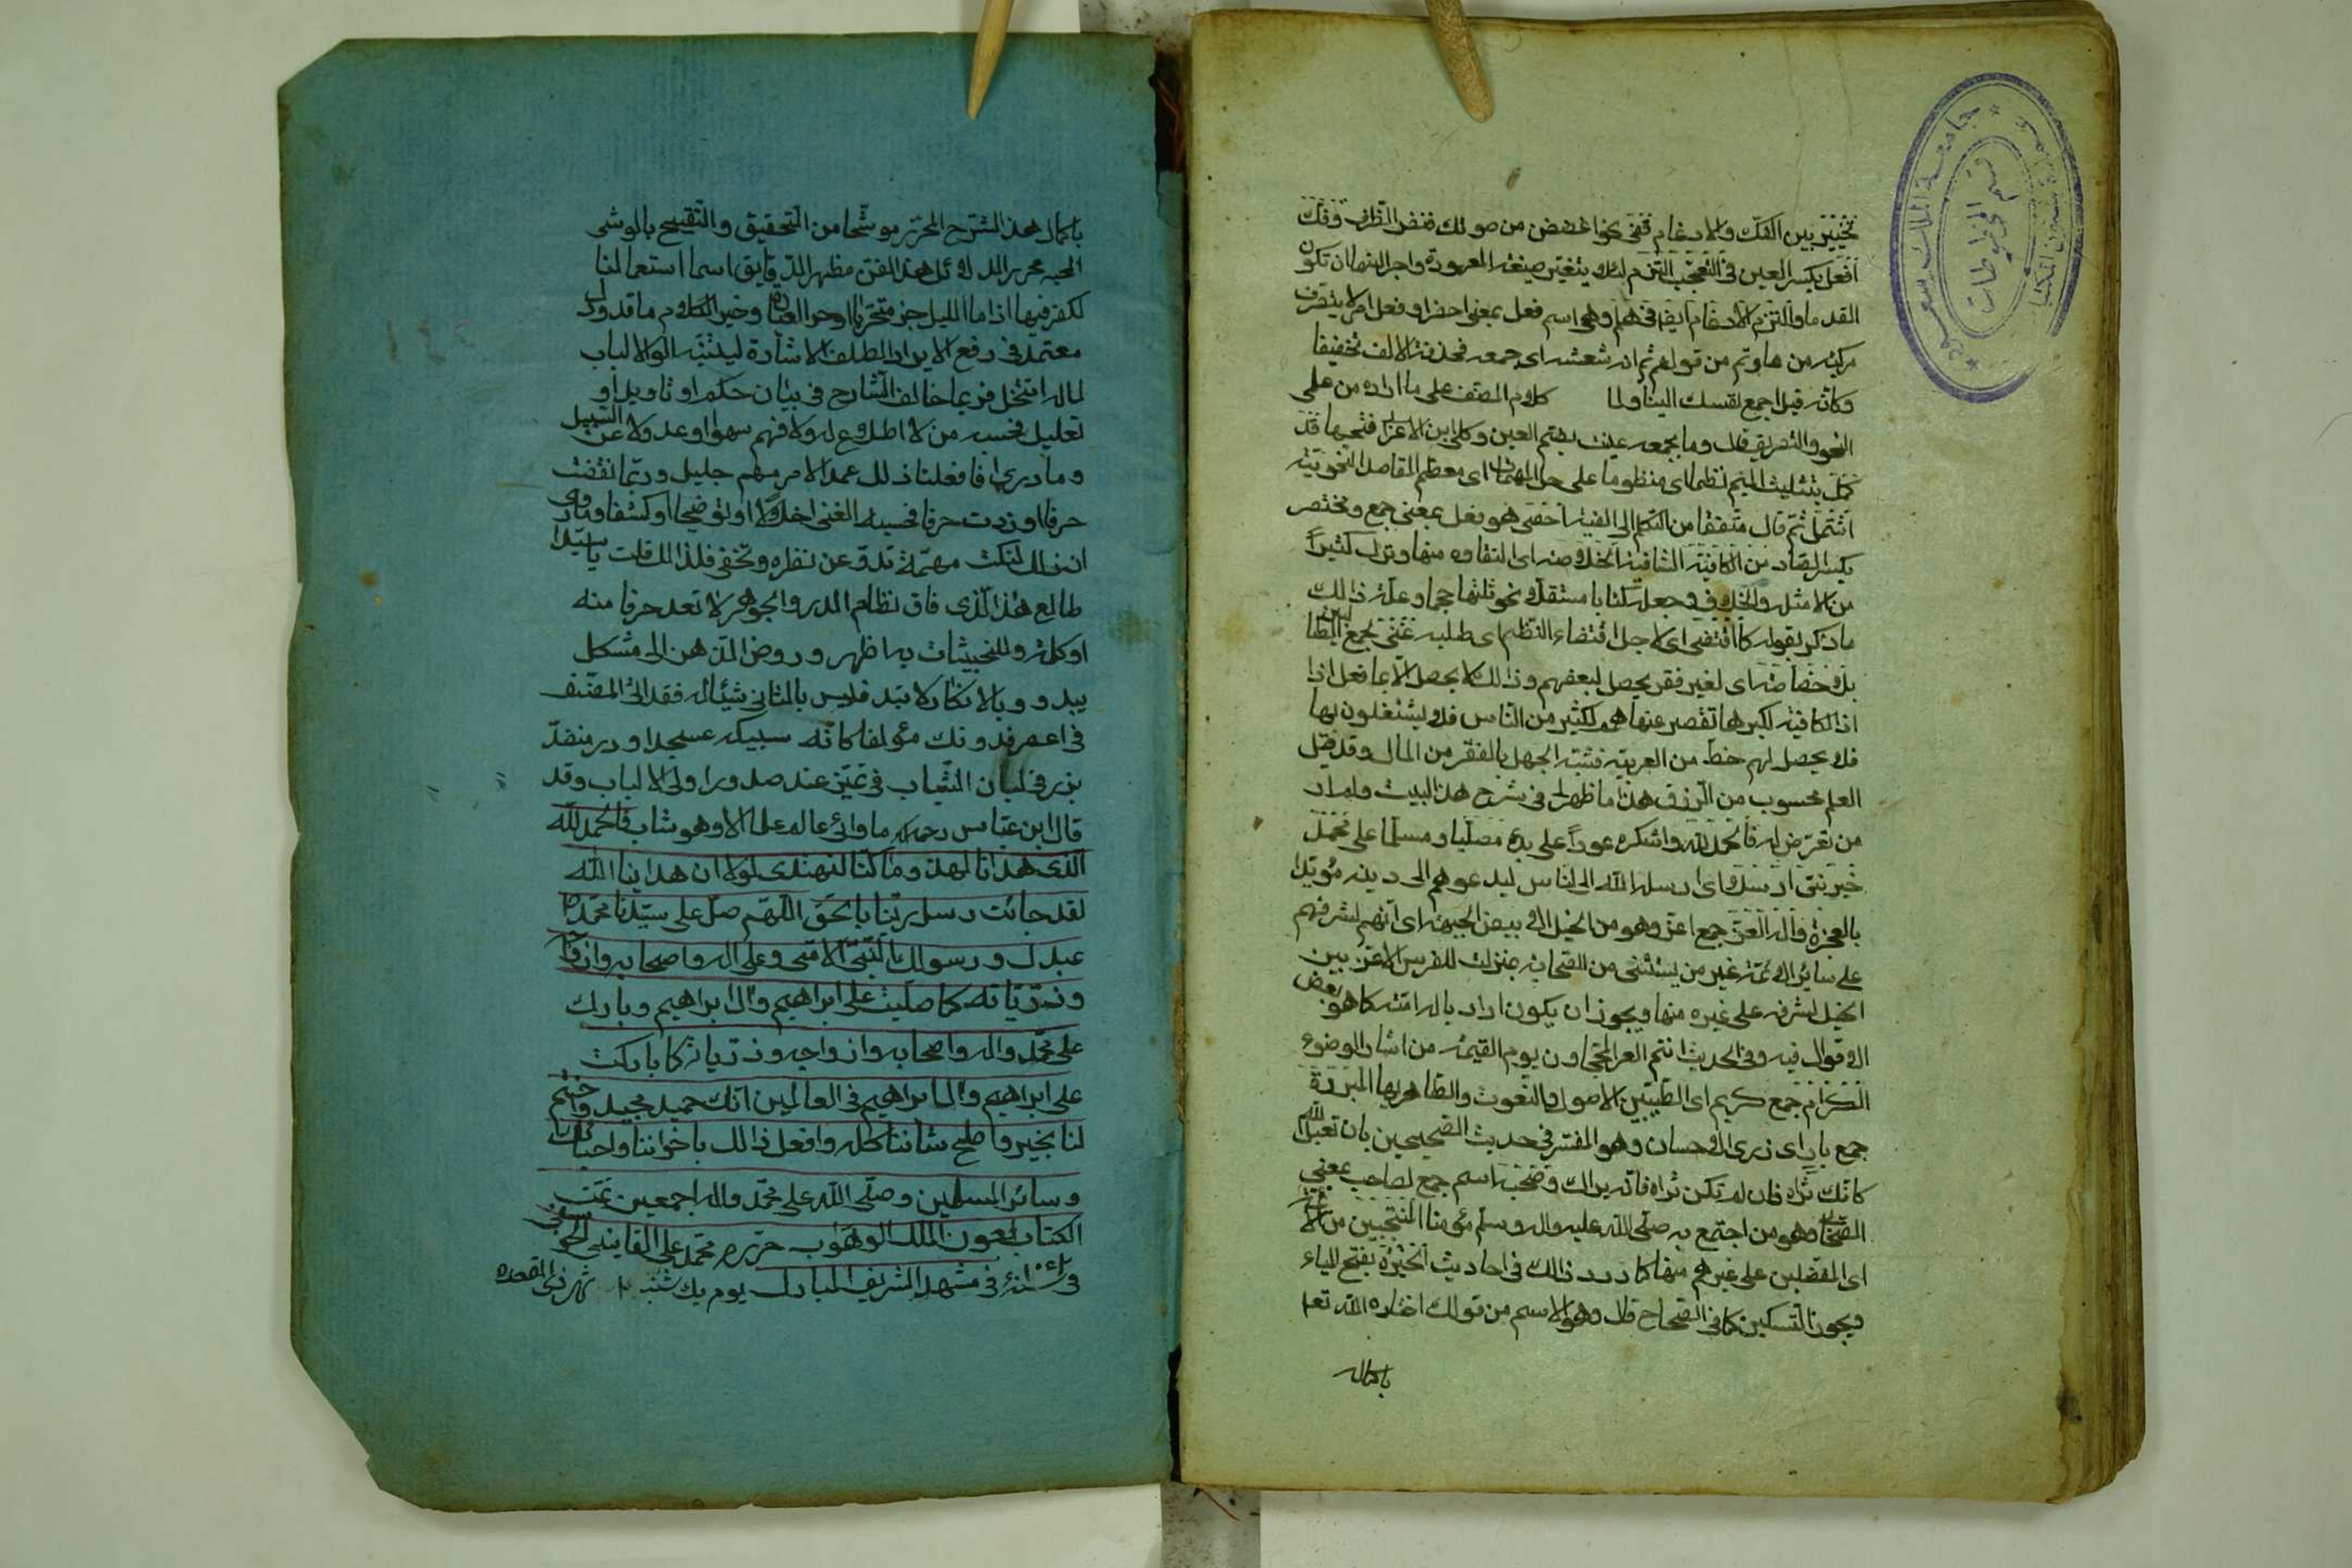 تخيير بين الفك والادغام ففى نحو اغضض من صوتك فغض الطرف وفك
افعل بكسر العين فى التعجب التزم لئلا يتغير صيغته المعهودة واجرائها ان تكون
القدما والتزم الادغام ايضا فى هلم وهى اسم فعل بمعنى احضر او فعل امر لا يتصرف
مركبة من ها ولم من قولهم لم الله شعثه اى جمعه فحذفت الالف تخفيفا
وكانه قيل اجمع نفسك الينا ولما كلام المصنف على ما اراده من علمى
النحو والتصريف قال وما بجمعه عنيت بضم العين وحكى ابن الاعرابى فتحها قد
كمل بتثليث الميم نظما اى منظوما على جل المهمات اى معظم المقاصد النحوية
اشتمل ثم قال متفقا من التكلم الى الغيبة احصى هو فعل بمعنى جمع مختصر
بكسر الصاد من الكافية الشافية الخلاصة اى النقاوه منها وترك كثيرا
من الامثلة والخلاف وجعله كتابا مستقلا نحو ثلثها حجما وعلة ذلك
ما ذكر بقوله كما اقتضى اى لاجل اقتضاء النظم اى طلبه غنى لجمع الطالبين
بلا خصاصة اى لغير فقر يحصل لبعضهم وذلك لا يحصل الا بما فعل اذا
اذ الكافية لكبرها تقصر عنها همم لكثير من الناس فلا يشتغلون بها
فلا يحصل لهم حظ من العربية فشبه الجهل بالفقر من المال وقد قيل
العلم محسوب من الرزق هذا ما ظهر لى فى شرح هذا البيت ولم ار
من تعرض له فاحمد لله واشكره عودا على بدء مصليا ومسلما على محمد
خير نبى ارسله اى ارسله الله الى الناس ليدعوهم الى دينه مؤيدا
بالمعجزة واله الغر جمع اغر وهو من الخيل الابيض الجبهة اى انهم لشرفهم
على سائر الامة غير من يستثنى من الصحابة بمنزلة الفرس الاغر بين
الخيل لشرفه على غيره منها ويجوز ان يكون اراد باله امته كما هو بعض
الاقوال فيه وفى الحديث انتم الغر المحجلون يوم القيمة من اثار الوضوء
الكرام جمع كريم اى الطيبين الاصول والنعوت والطاهريها البررة
جمع بار اى ذوى الاحسان وهو المفسر فى حديث الصحيحين بان تعبد الله
كانك تراه فان لم تكن تراه فانه يراك وصحبه اسم جمع لصاحب بمعنى
الصحابى وهو من اجتمع به صلى الله عليه واله وسلم مؤمنا المنتخبين من
اى المفضلين على غيرهم منها كما ورد ذلك فى احاديث الخيرة بفتح الياء
ويجوز التسكين كما فى الصحاح قال وهو الاسم من قولك اختاره الله تعا
باكمال
باكمال هذا الشرح المحرر موشحا من التحقيق والتنقيح بالوشى
المحبه محررا لدلائل هذا الفن مظهرا لدقايق اسما استعمالنا
لفكر فيها اذا ما الليل جن متحريا اوجز العبارة وخير الكلام ما قل ودل
معتمد فى دفع الايراد الطف الاشارة ليتنبه اولوا الالباب
لما له انتحل فربما خالف الشارح فى بيان حكم او تاويل او
تعليل فحسبه من لا اطلاع له ولا فهم سهوا وعدولا عن السبيل
وما درى انا فعلنا ذلك عمدا لامر مهم جليل وربما نقصت
حرفا او زدت حرفا فحسبه الغبى اخلالا او توضيحا او كشفا وما درى
ان ذلك لنكتة مهمة تدق عن نظره وتخفى فلذلك قلت يا سيدا
طالع هذا الذى فاق نظام الدر والجوهر لا تعد حرفا منه
او كلمة وللخبيئات به اظهر وروض الذهن الى مشكل
يبدو وبالانكار لا تبدر فليس بالثانى شيئا له فقد الى المصنف
فى اعصر فدونك مؤلفا كانه سبيكة عسجد او در منضد
برز فى لبان الشباب فى تميز عند صدور اولى الالباب وقد
قال ابن عباس رحمه ما اوتى عالم علما الا وهو شاب فالحمد لله
الذى هدانا لهذا وما كنا لنهتدى لولا ان هدانا الله
لقد جائت رسل ربنا بالحق اللهم صل على سيدنا محمد
عبدك ورسولك النبى الامى وعلى اله واصحابه وازواجه
وذرياته كما صليت على ابراهيم وال ابراهيم وبارك
على محمد واله واصحابه وازواجه وذرياته كما باركت
على ابراهيم وال ابراهيم فى العالمين انك حميد مجيد واختم
لنا بخير واصلح شاننا كله وافعل ذلك باخواننا واحبائنا
وسائر المسلمين وصلى الله على محمد واله اجمعين تمت
الكتاب بعون الملك الوهاب حرره محمد على القاينى
فى مشهد الشريف المبارك يوم يك شنبه شهر ذى القعده
جامعة الملك سعود
قسم المخطوطات